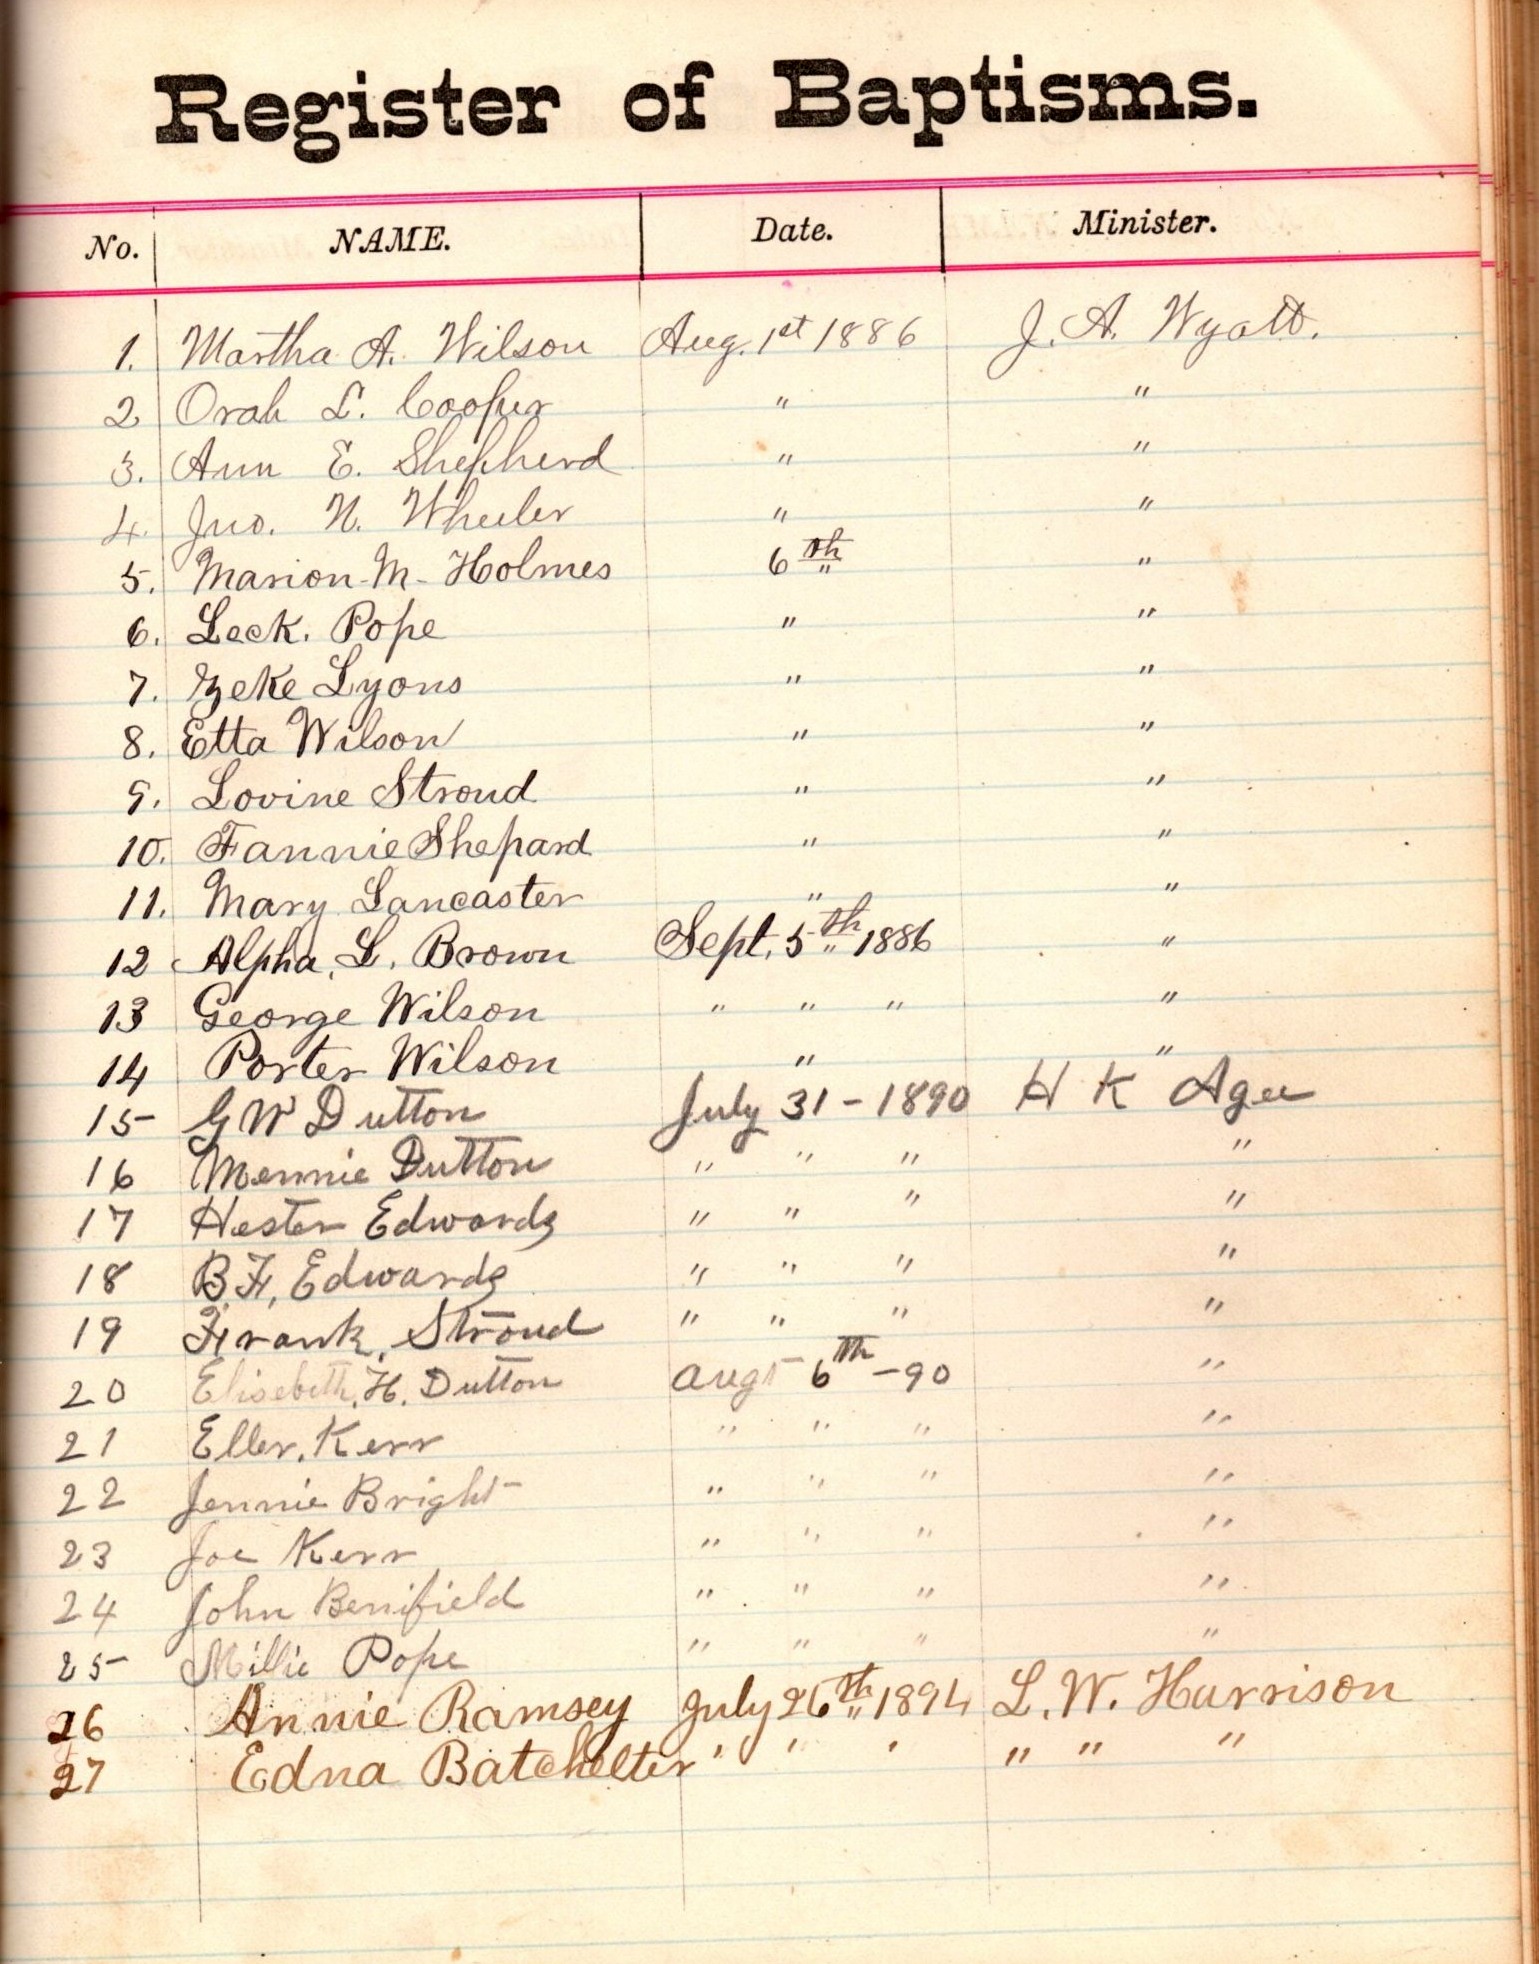 Register of Baptisms.
No. NAME. Date. Minister.
1. Martha A. Wilson Aug. 1st 1886 J. A. Wyatt.
2 Orah L. Cooper " "
3. Ann E. Shepherd " "
4. Jno. N. Wheeler " "
5. Marion M. Holmes 6th "
6. Leck. Pope " "
7. Zeke Lyons " "
8. Etta Wilson " "
9. Lovine Stroud " "
10. Fannie Shepard " "
11. Mary Lancaster " "
12 Alpha. L. Brown Sept. 5th 1886 "
13 George Wilson " " " "
14 Porter Wilson " "
15 G W Dutton July 31 - 1890 H K Agee
16 Mennie Dutton " " " "
17 Hester Edwards " " " "
18 B. F. Edwards " " " "
19 Frank. Stroud " " " "
20 Elisebeth. H. Dutton Augt 6th - 90 "
21 Eller. Kerr " " " "
22 Jennie Bright " " " "
23 Joe Kerr " " " "
24 John Benifield " " " "
25 Millie Pope " " " "
26 Annie Ramsey July 26th 1894 L. W. Harrison
27 Edna Batchelter " " " " " "